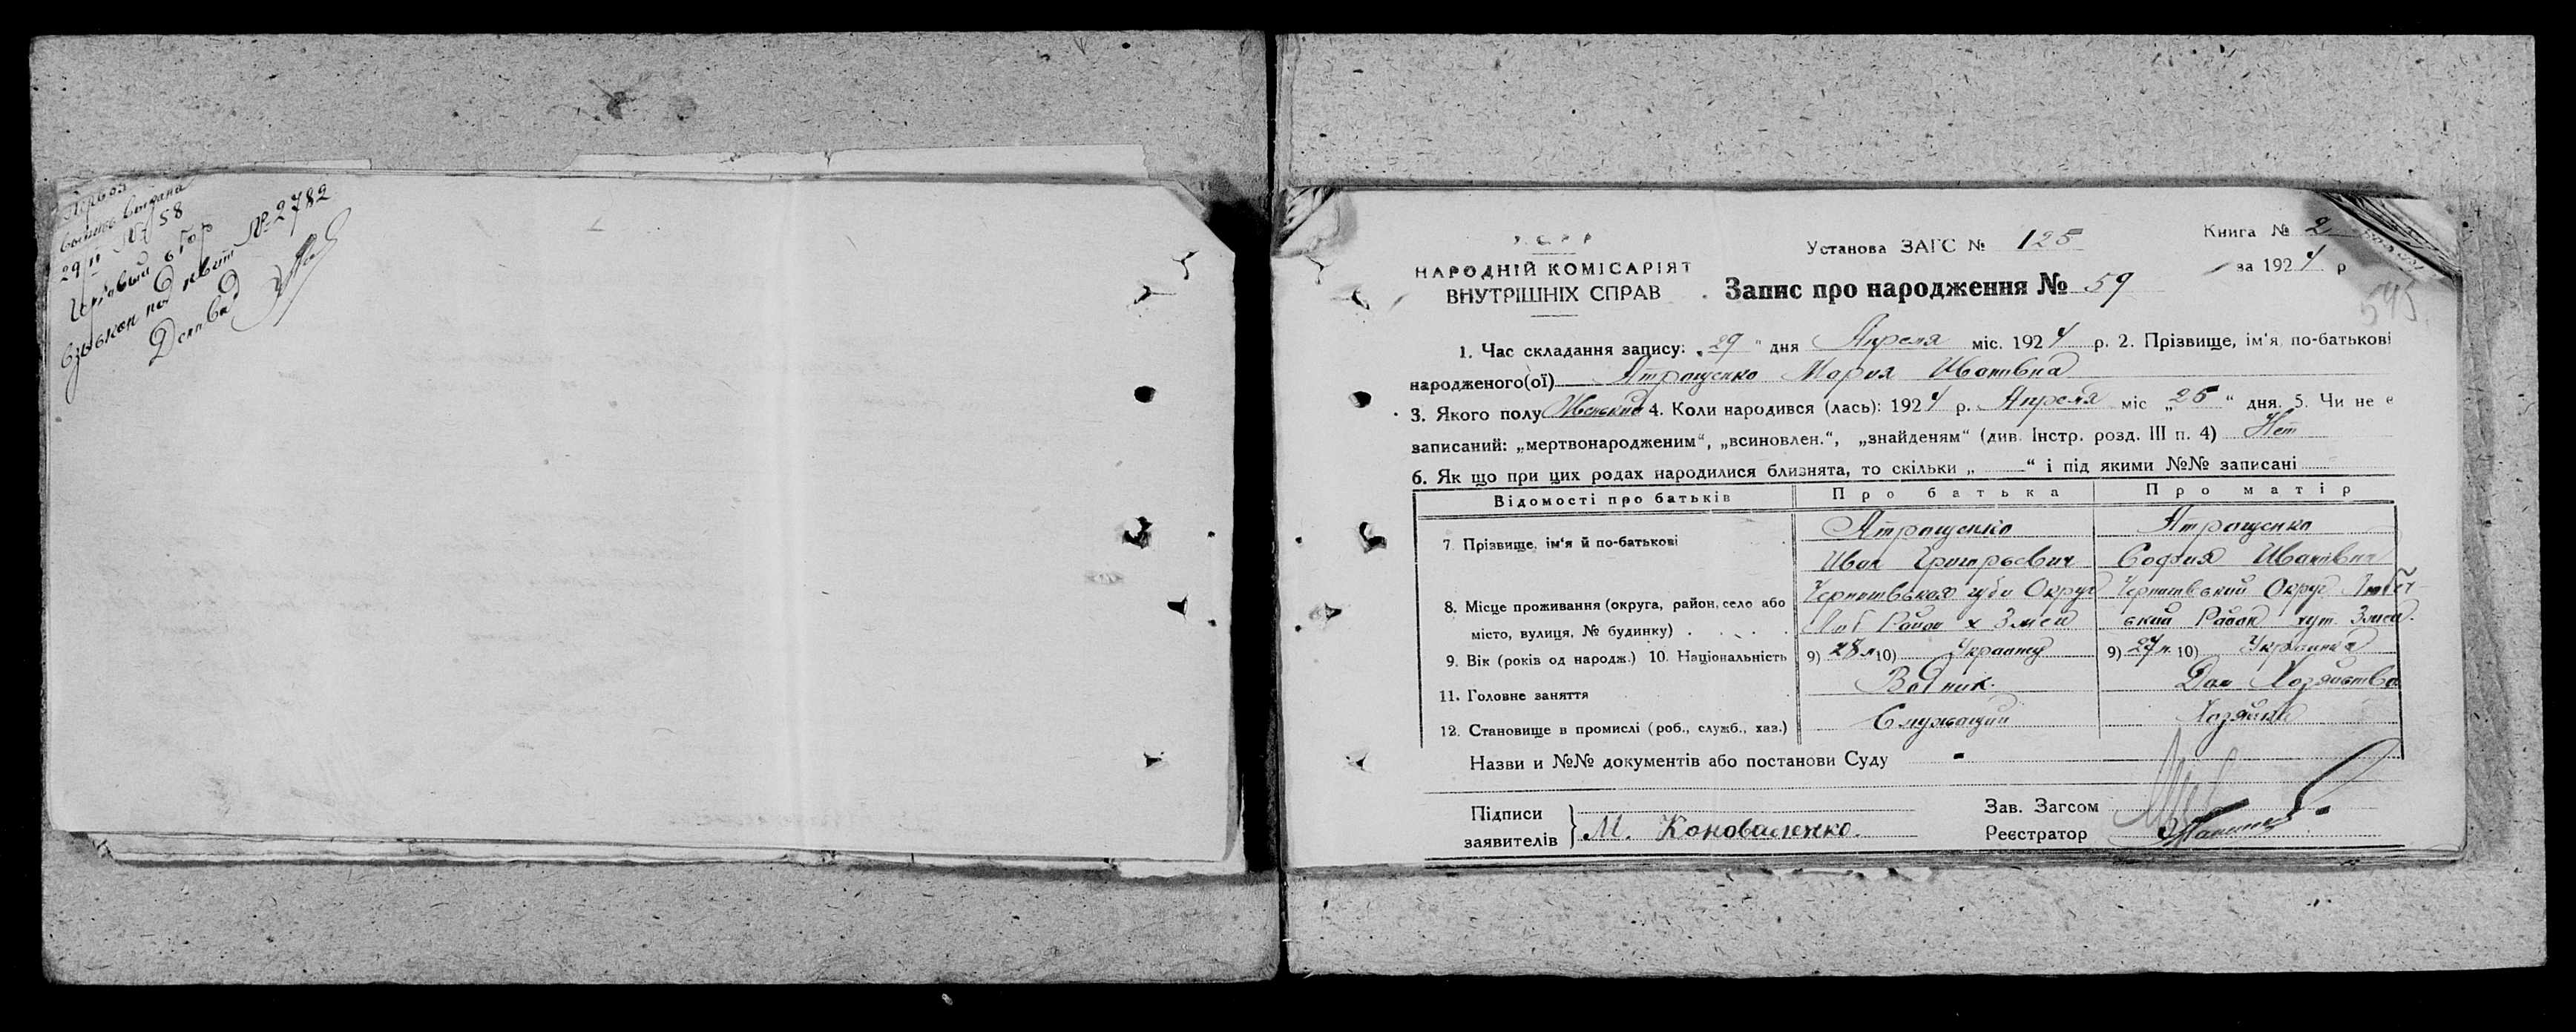 Первая
выпись выдана
29/II № 58
Гербовый сбор
взыскан под квит № 2782
У. С. Р. Р.
НАРОДНІЙ КОМІСАРІЯТ
ВНУТРІШНІХ СПРАВ
Установа ЗАГС № 125
Книга № 2
за 1924 р
Запис про народження № 59
545
1. Час складання запису: „29“ дня Апреля міс. 1924 р. 2. Прізвище, ім'я, по-батькові
народженого(ої) Ятрощенко Мария Ивановна
3. Якого полу Женский 4. Коли народився (лась): 1924 р. Апреля міс „25“ дня. 5. Чи не є
записаний: „мертвонародженим“, „всиновлен.“, „знайденям“ (див. Інстр. розд. III п. 4) Нет
6. Як що при цих родах народилися близнята, то скільки „ “ і під якими №№ записані
Відомості про батьків Про батька Про матір
7. Прізвище, ім'я й по-батькові Ятрощенко Ятрощенко
Иван Григорьевич София Ивановна
8. Місце проживання (округа, район, село або Черниговская губ Округ Черниговский Округ Любеч-
місто, вулиця, № будинку) Люб Район х Змеи ский Район хут. Змеи.
9. Вік (років од народж.) 10. Національність 9) 28 л 10) Украинец 9) 27 л. 10) Украинка
11. Головне заняття Водник. Дом Хозяйство
12. Становище в промислі (роб., служб., хаз.) Служащий Хозяйка
Назви и №№ документів або постанови Суду -
Підписи
заявителів } М. Коноваленко.
Зав. Загсом
Реєстратор